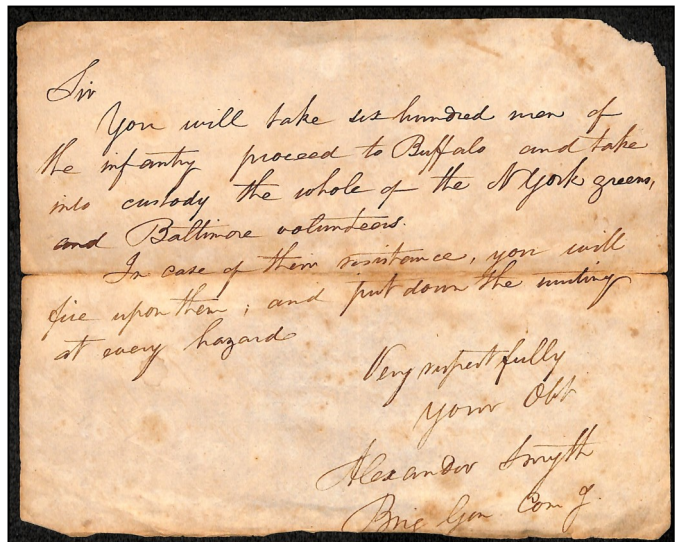 Sir
You will take six hundred men of
the infantry proceed to Buffalo and take
into custody the whole of the N York greens,
and Baltimore volunteers.
In case of them resistance, you will
fire upon them; and put down the mutiny
at every hazard
Very respectfully
your Obt
Alexander Smyth
Brig Gen Com g.